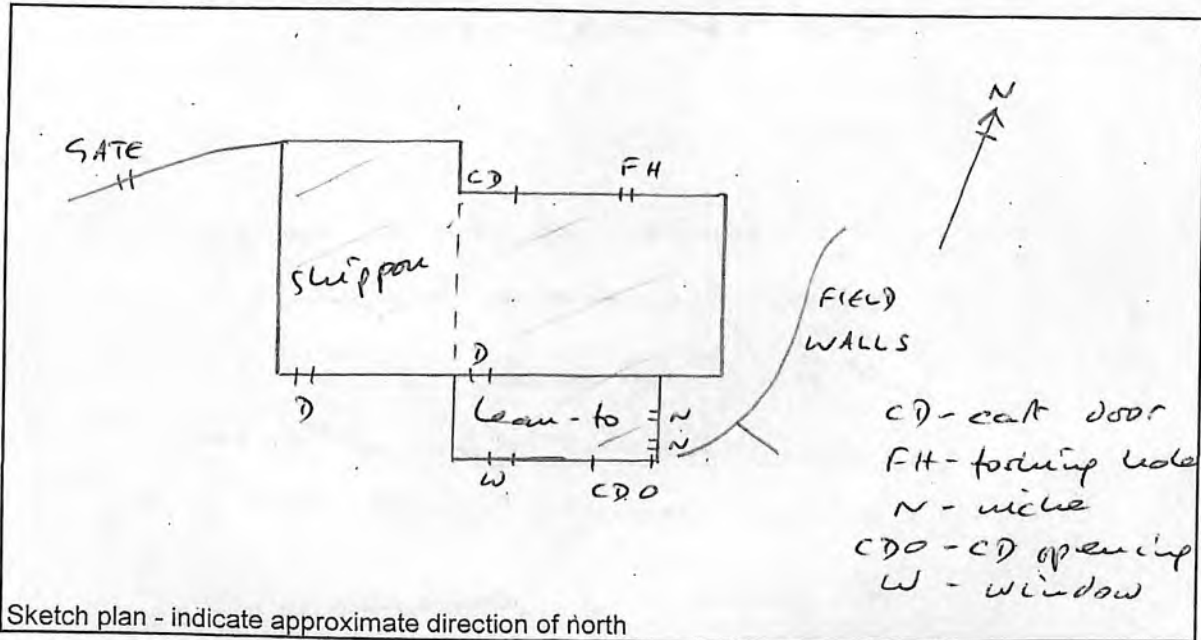 N
GATE
CD
FH
shippon
FIELD
WALLS
D
D
Lean-to
N
N
W
CDO
CD - cart door
FH - forking hole
N - niche
CDO - CD opening
W - window
Sketch plan - indicate approximate direction of north